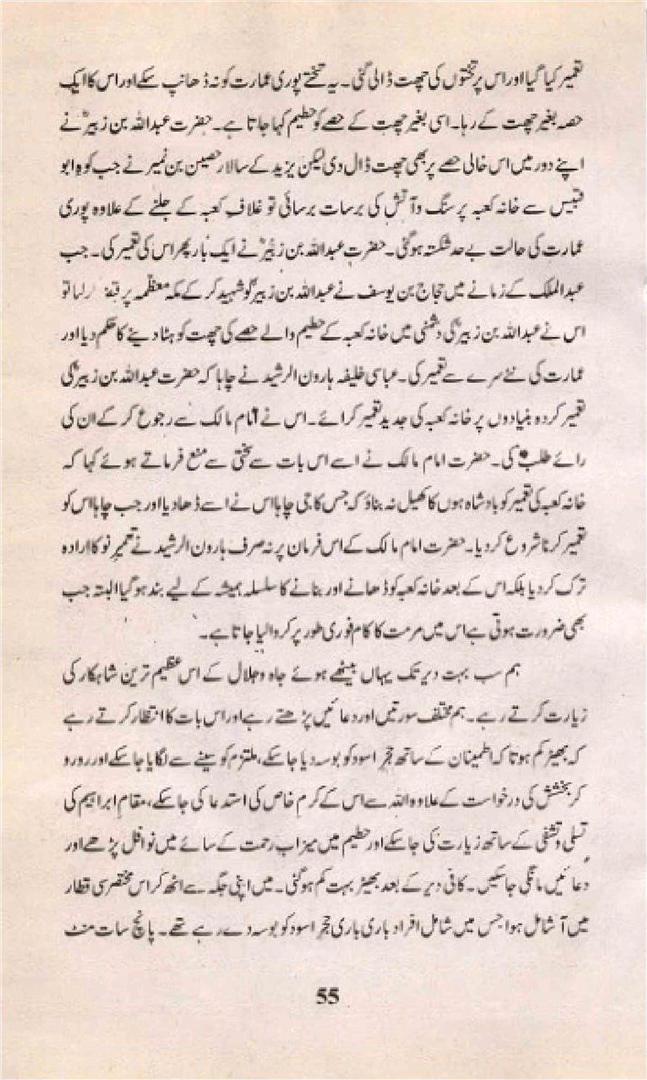 تعمیر کیا گیا اور اس پر تختوں کی چھت ڈالی گئی۔ یہ تختے پوری عمارت کو نہ ڈھانپ سکے اور اس کا ایک
حصہ بغیر چھت کے رہا۔ اسی بغیر چھت کے حصے کو حطیم کہا جاتا ہے۔ حضرت عبداللہ بن زبیرؓ نے
اپنے دور میں اس خالی حصے پر بھی چھت ڈال دی لیکن یزید کے سالار حصین بن نمیر نے جب کوہِ ابو
قبیس سے خانہ کعبہ پر سنگ و آتش کی برسات برسائی تو غلافِ کعبہ کے جلنے کے علاوہ پوری
عمارت کی حالت بے حد شکستہ ہو گئی۔ حضرت عبداللہ بن زبیرؓ نے ایک بار پھر اس کی تعمیر کی۔ جب
عبدالملک کے زمانے میں حجاج بن یوسف نے عبداللہ بن زبیرؓ کو شہید کر کے مکہ معظمہ پر قبضہ کر لیا تو
اس نے عبداللہ بن زبیرؓ کی دشمنی میں خانہ کعبہ کے حطیم والے حصے کی چھت کو ہٹا دینے کا حکم دیا اور
عمارت کی نئے سرے سے تعمیر کی۔ عباسی خلیفہ ہارون الرشید نے چاہا کہ حضرت عبداللہ بن زبیرؓ کی
تعمیر کردہ بنیادوں پر خانہ کعبہ کی جدید تعمیر کرائے۔ اس نے امام مالک سے رجوع کر کے ان کی
رائے طلب کی۔ حضرت امام مالک نے اسے اس بات سے سختی سے منع فرماتے ہوئے کہا کہ
خانہ کعبہ کی تعمیر کو بادشاہوں کا کھیل نہ بناؤ کہ جس کا جی چاہا اس نے اسے ڈھا دیا اور جب چاہا اس کو
تعمیر کرنا شروع کر دیا۔ حضرت امام مالک کے اس فرمان پر نہ صرف ہارون الرشید نے تعمیرِ نو کا ارادہ
ترک کر دیا بلکہ اس کے بعد خانہ کعبہ کو ڈھانے اور بنانے کا سلسلہ ہمیشہ کے لیے بند ہو گیا البتہ جب
بھی ضرورت ہوتی ہے اس میں مرمت کا کام فوری طور پر کروا لیا جاتا ہے۔
ہم سب بہت دیر تک یہاں بیٹھے ہوئے جاہ و جلال کے اس عظیم ترین شاہکار کی
زیارت کرتے رہے۔ ہم مختلف سورتیں اور دعائیں پڑھتے رہے اور اس بات کا انتظار کرتے رہے
کہ بھیڑ کم ہو تا کہ اطمینان کے ساتھ حجرِ اسود کو بوسہ دیا جا سکے، ملتزم کو سینے سے لگایا جا سکے اور رو رو
کر بخشش کی درخواست کے علاوہ اللہ سے اس کے کرم خاص کی استدعا کی جا سکے، مقام ابراہیم کی
تسلی و تشفی کے ساتھ زیارت کی جا سکے اور حطیم میں میزاب رحمت کے سائے میں نوافل پڑھے اور
دعائیں مانگی جا سکیں۔ کافی دیر کے بعد بھیڑ بہت کم ہو گئی۔ میں اپنی جگہ سے اٹھ کر اس مختصر سی قطار
میں آ شامل ہوا جس میں شامل افراد باری باری حجرِ اسود کو بوسہ دے رہے تھے۔ پانچ سات منٹ
55